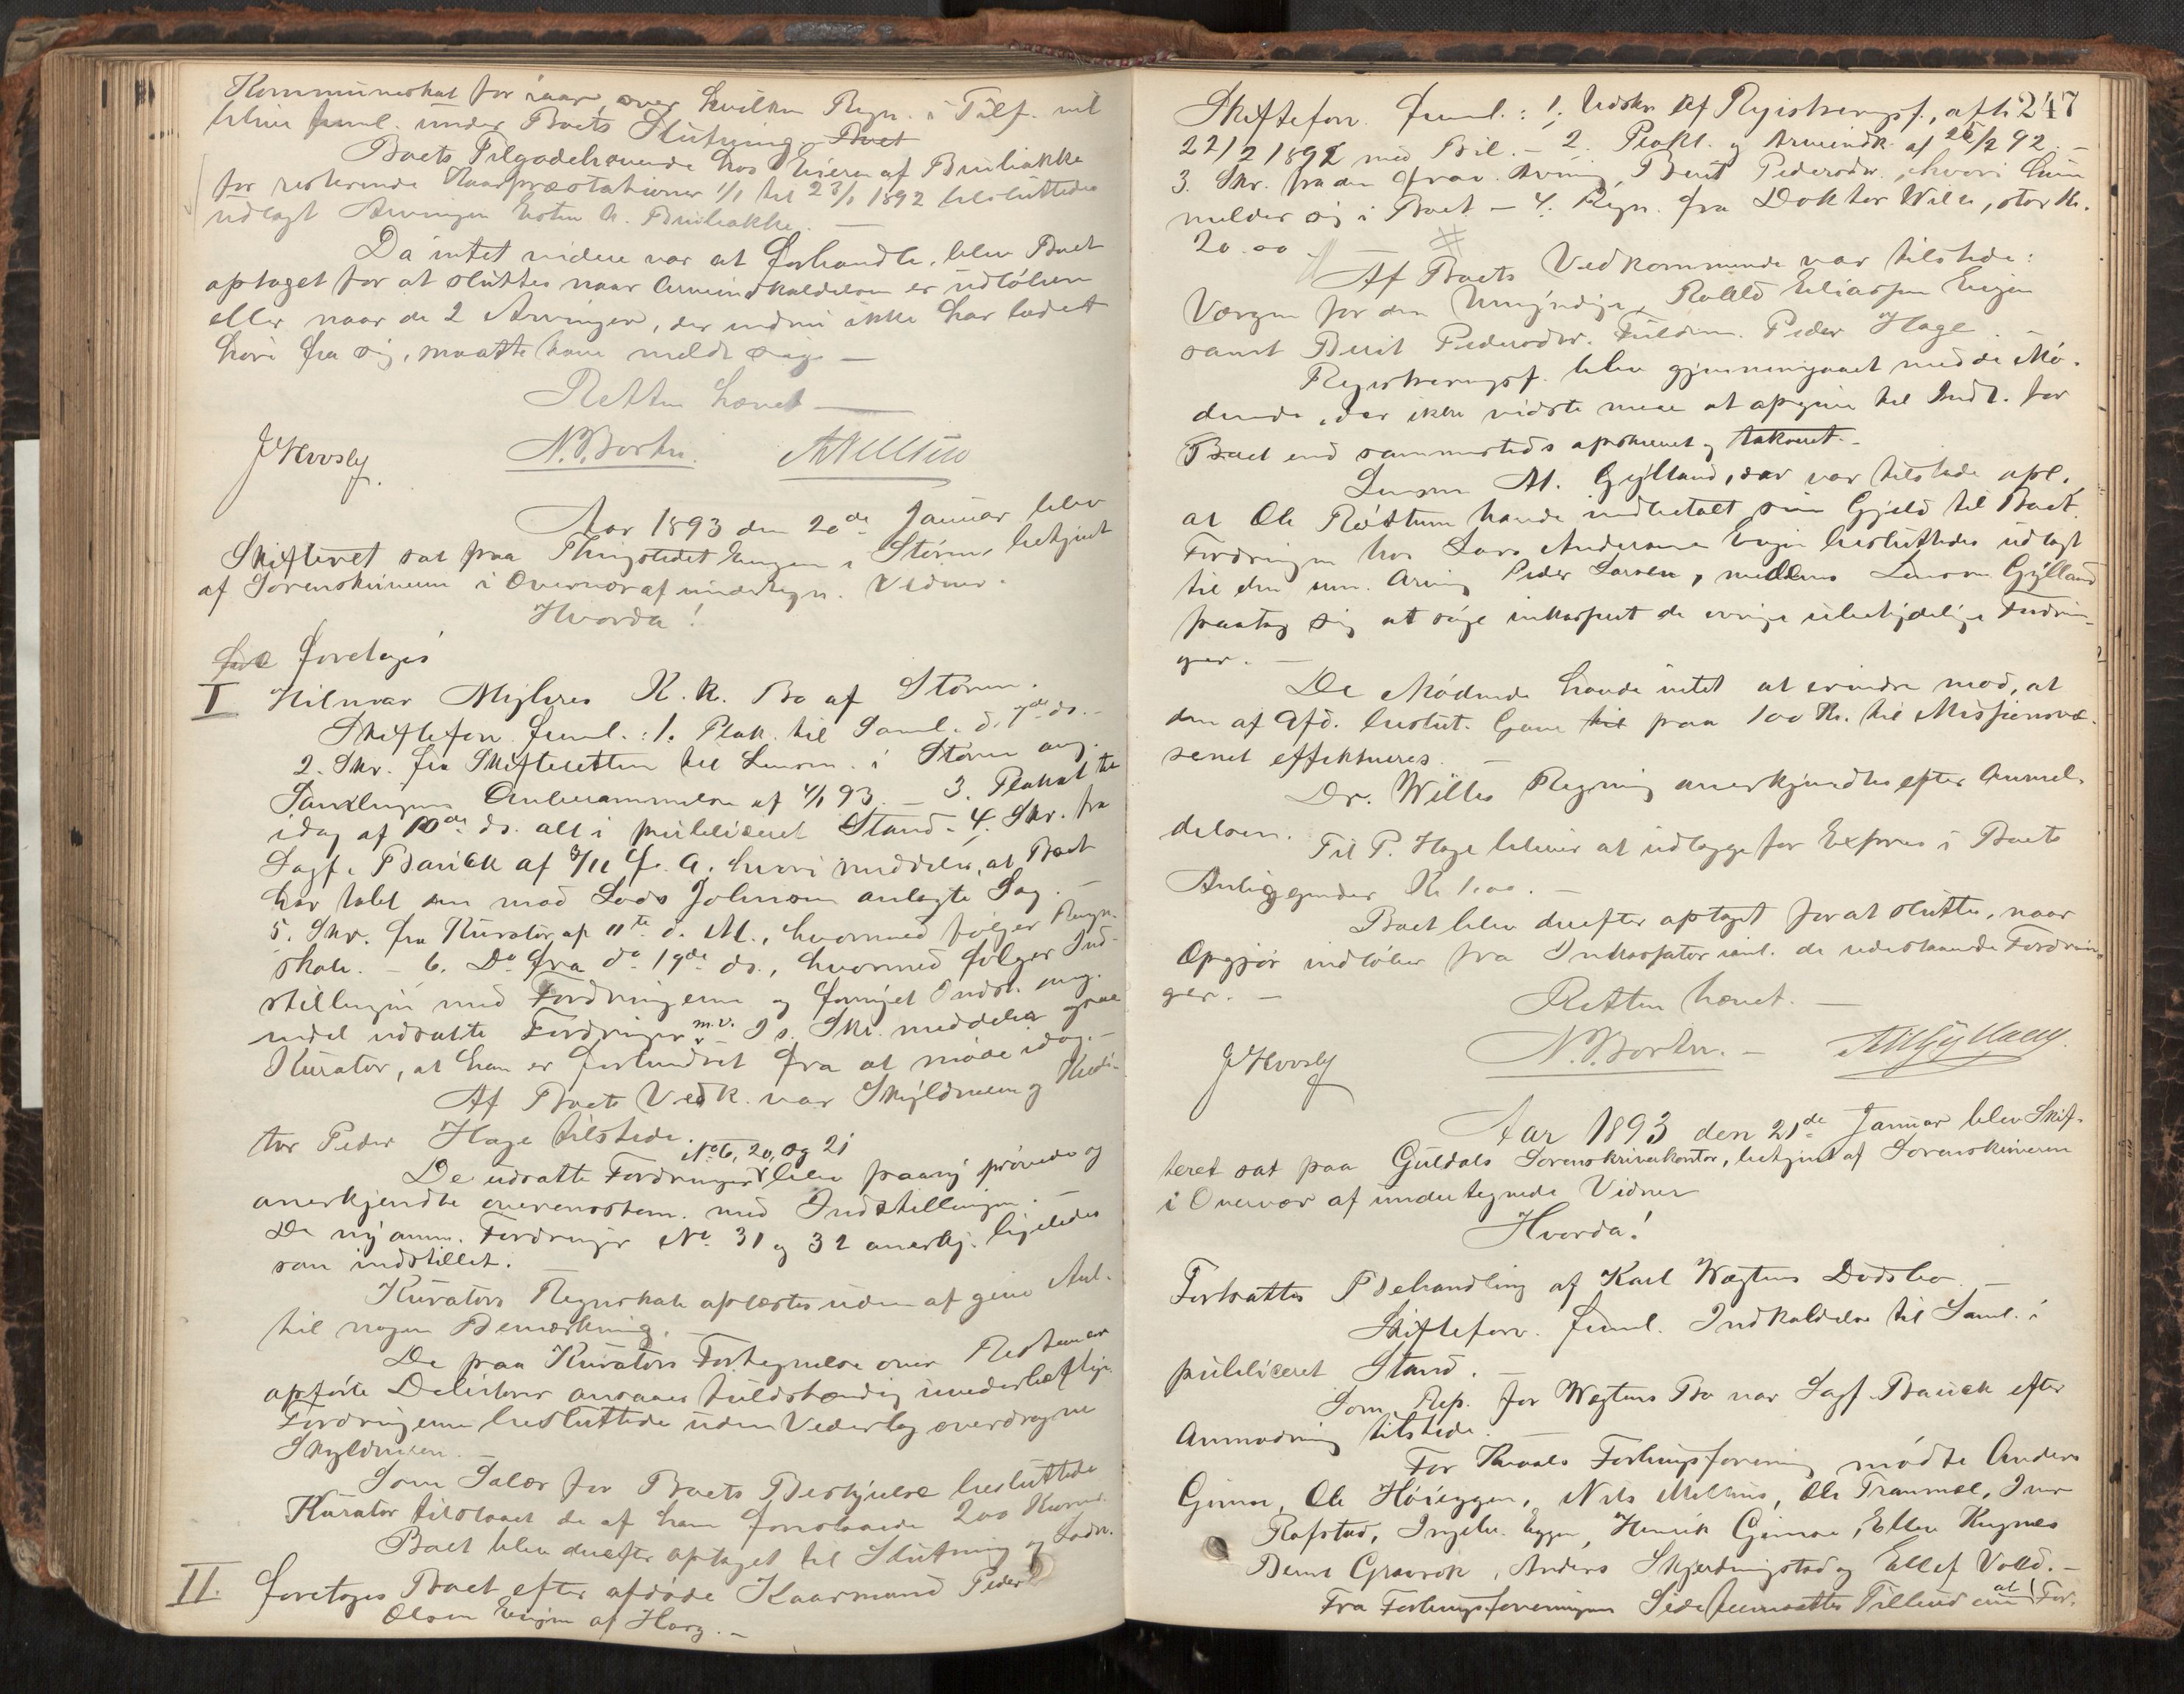 Kommuneskat for iaar, over hvilken Regn. i Tilf. vil
blive freml. under Boets Slutning. Boet
Boets Tilgodehavende hos Eieren af Buibakke
for resterende Kaarpræstationer 1/1 til 23/1 1892 besluttedes
udlagt Arvingen Esten A. Buibakke. —
Da intet videre var at forhandle, blev Boet
optaget for at sluttes naar Arveindkaldelsen er udløben
eller naar de 2 Arvinger, der endnu ikke har ladet
høre fra sig, maatte have meldt sig. —
Retten hævet —
J Hvosly. N. Borten.
Aar 1893 den 20de Januar blev
Skifteret sat paa Thingstedet Engen i Støren, betjent
af Sorenskriveren i Overvær af undertegn. Vidner.
Hvorda!
foretoges
I Hilmar Myhres K. K. Bo af Støren.
Skifteforv. freml.: 1. Plak. til Saml. d. 7de ds. —
2. Skr. fra Skifteretten til Lensm. i Støren ang.
Samlingens Anberammelse af 4/1 93. — 3. Plakat til
idag af 10de ds. alt i publiceret Stand. — 4. Skr. fra
Sagf. Bauck af 3/11 f. A. hvori meddeles, at Boet
har tabt den mod Lods Johnsen anlagte Sag. —
5. Skr. fra Kurator af 11te d. M., hvormed følger Regn-
skab. — 6. Do fra do 19de ds., hvormed følger Ind-
stillingen med Fordringerne og fornyet Indst. ang.
endel udsatte Fordringer m.v. I s. Skr. meddeler ogsaa
Kurator, at han er forhindret fra at møde idag. —
Af Boets Vedk. var Skyldneren og Kredi-
tor Peder Hage tilstede.
De udsatte Fordringer No 6, 20, og 21 blev paany prøvede og
anerkjendte overensstem. med Indstillingen. —
De ny anm. Fordringer No. 31 og 32 anerkj. ligeledes
som indstillet.
Kurators Regnskab oplæstes uden at give Anl.
til nogen Bemærkning.
De paa Kurators Fortegnelse over Restancer
opførte Debitorer ansaaes fuldstændig uvederhæftige.
Fordringerne besluttedes uden Vederlag overdragne
Skyldneren. —
Som Salær for Boets Bestyrelse besluttedes
Kurator tilstaaet de af ham foreslaaede 200 Kroner.
Boet blev derefter optaget til Slutning og
II. foretoges Boet efter afdøde Kaarmand Peder
Olsen Engen af Horg. —
247
Skifteforv. freml.: 1. Udskr. af Registreringsf., afh.
22/2 1892 med Bil. — 2. Prokl. og Arveindk. af 26/2 92. —
3. Skr. fra den fravær. Arving, Berit Pedersdtr., hvori hun
melder sig i Boet — 4. Regn. fra Doktor Wille, stor Kr.
20.00
Af Boets Vedkommende var tilstede:
Værgen for den Umyndige, Eliassen Engen
samt Berit Pedersdtr. Fuldm. Peder Hage. —
Registreringsf. blev gjennemgaaet med de Mø-
dende, der ikke vidste mere at opgive til Indt. for
Boet end sammesteds opskrevet og takseret. —
Lensm. M. Gylland, der var tilstede opl.,
at Ole Røttum havde indbetalt sin Gjeld til Boet.
Fordringen hos Lars Andersen Engen besluttedes udlagt
til den um. Arving Peder Larsen, medens Lensm. Gylland
paatog sig at søge inkasseret de øvrige ubetydelige Fordrin-
ger. —
De Mødende havde intet at erindre mod, at
den af Afd. beslut. Gave til paa 100 Kr. til Missionsvæ-
senet effektueres. —
Dr. Willes Regning anerkjendtes efter Anmel-
delsen.
Til P. Hage bliver at udlægge for Expres i Boets
Anliggender Kr. 1.00. —
Boet blev derefter optaget for at sluttes, naar
Opgjør indløber fra Inkassator anl. de udestaaende Fordrin-
ger. —
Retten hævet. —
J Hvosly N. Borten. — M Gylland.
Aar 1893 den 21de Januar blev Skif-
teret sat paa Guldals Sorenskriverkontor, betjent af Sorenskriveren
i Overvær af undertegnede Vidner
Hvorda!
Fortsattes Behandling af Karl Wægtens Dødsbo. —
Skifteforv. freml. Indkaldelse til Saml. i
publiceret Stand. —
Som Rep. for Wægtens Bo var Sagf. Bauck efter
Anmodning tilstede. —
For Forbrugsforening mødte Anders
Gimse, Ole Høieggen, Nils Melhus, Ole Tranmæl, Iver
Rofstad, Ingebr. Eggen, Henrik Gimse, Ellev Kregnes
Bernt Gravrok, Anders Skjerdingstad og Ellef Vold. —
Fra Forbrugsforeningens Side fremsattes Tilbud om at For-